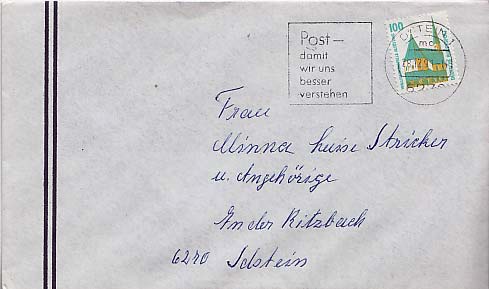 Post –
damit
wir uns
besser
verstehen
100
Frau
Minna Luise Stricker
u. Angehörige
In der Ritzbach
6270 Idstein